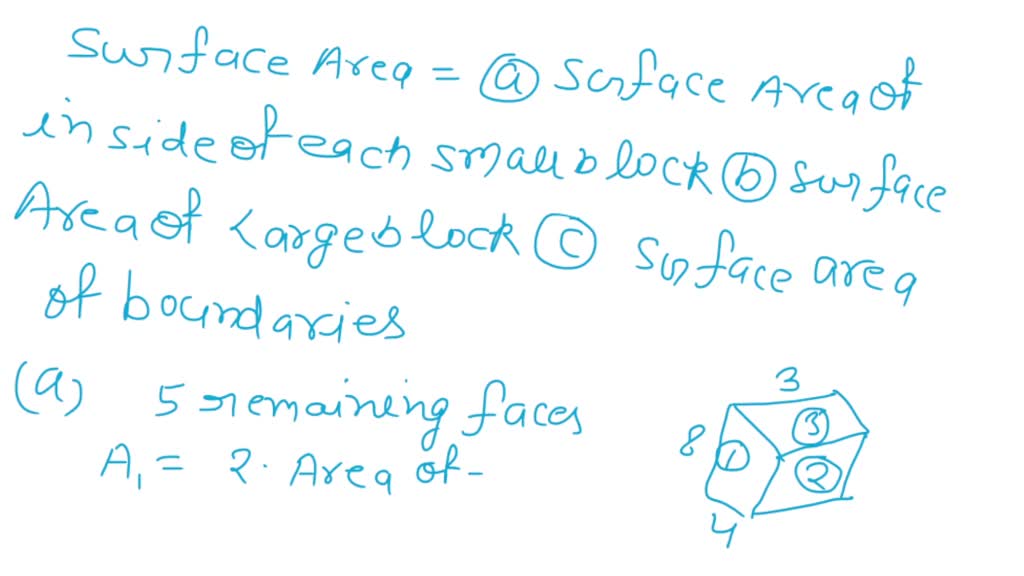 Surface Area = (a) Surface Area of
inside of each small block (b) surface
Area of Large block (c) surface area
of boundaries
(a) 5 remaining faces
A₁ = 2. Area of -
3
8
1
3
2
4